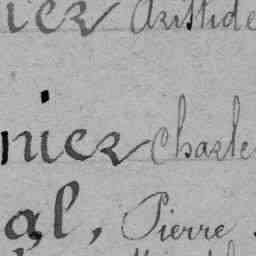 ier Aristide
nier Charle
al, Pierre.